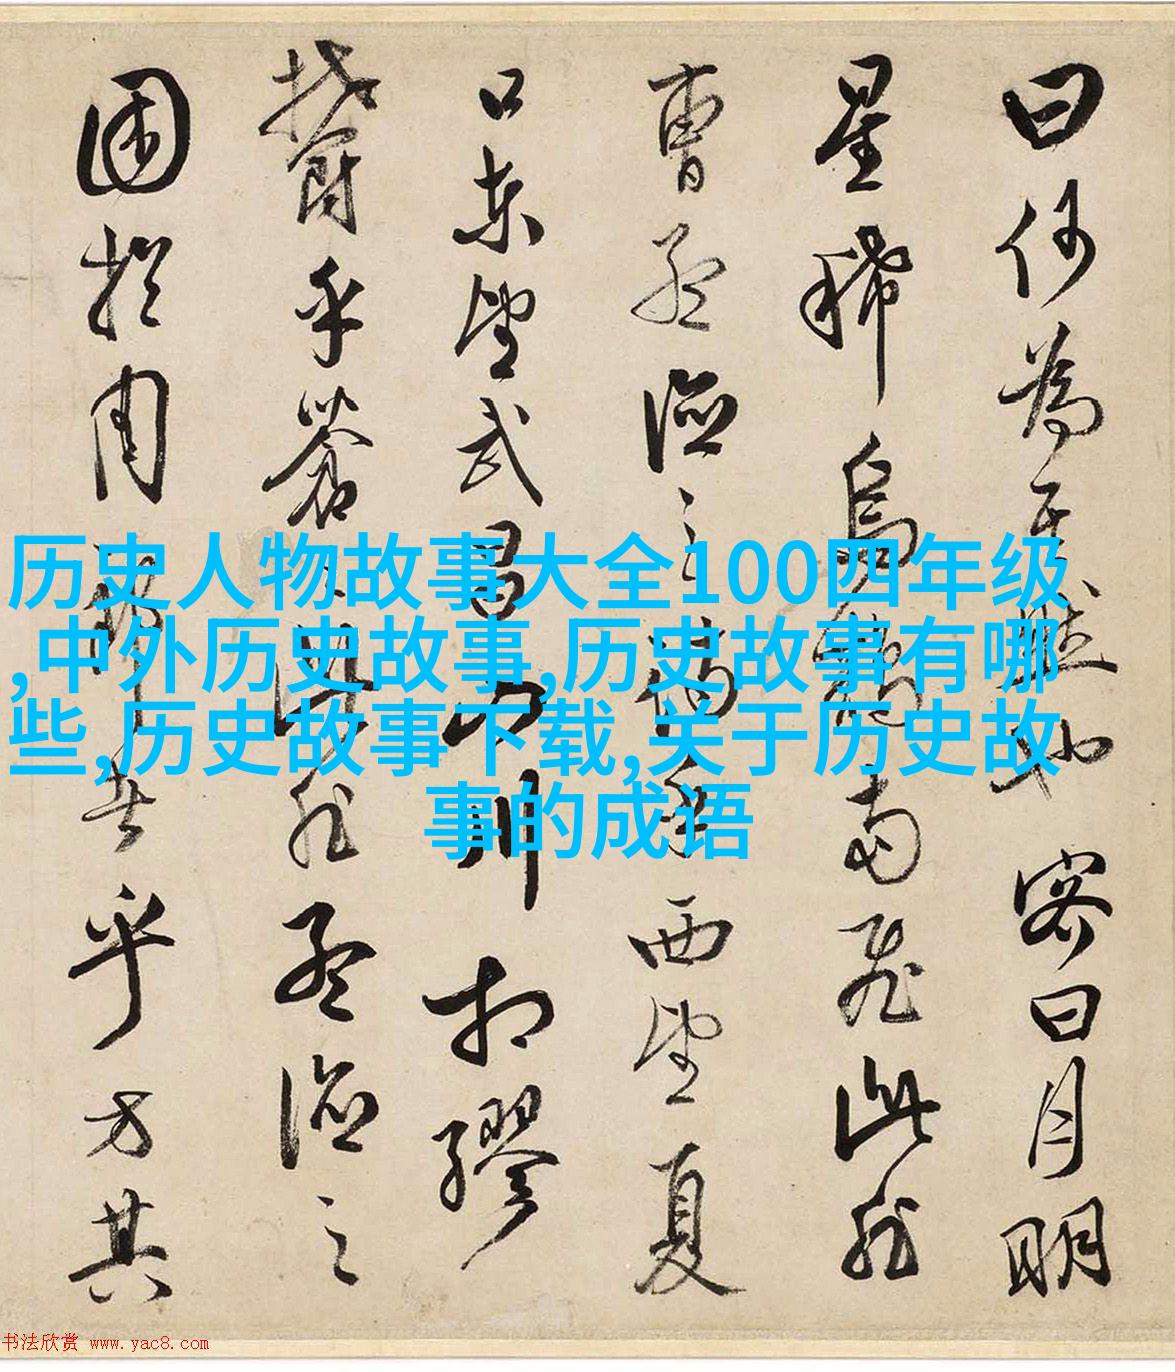 曰何為其然也客曰月明
星稀烏鵲南飛此非
曹孟德之詩乎西望夏
口東望武昌山川相繆
鬱乎蒼〻此非孟德之
困於周郎者乎方其
历史人物故事大全100四年级
,中外历史故事,历史故事有哪
些,历史故事下载,关于历史故
事的成语
书法欣赏 www.yac8.com